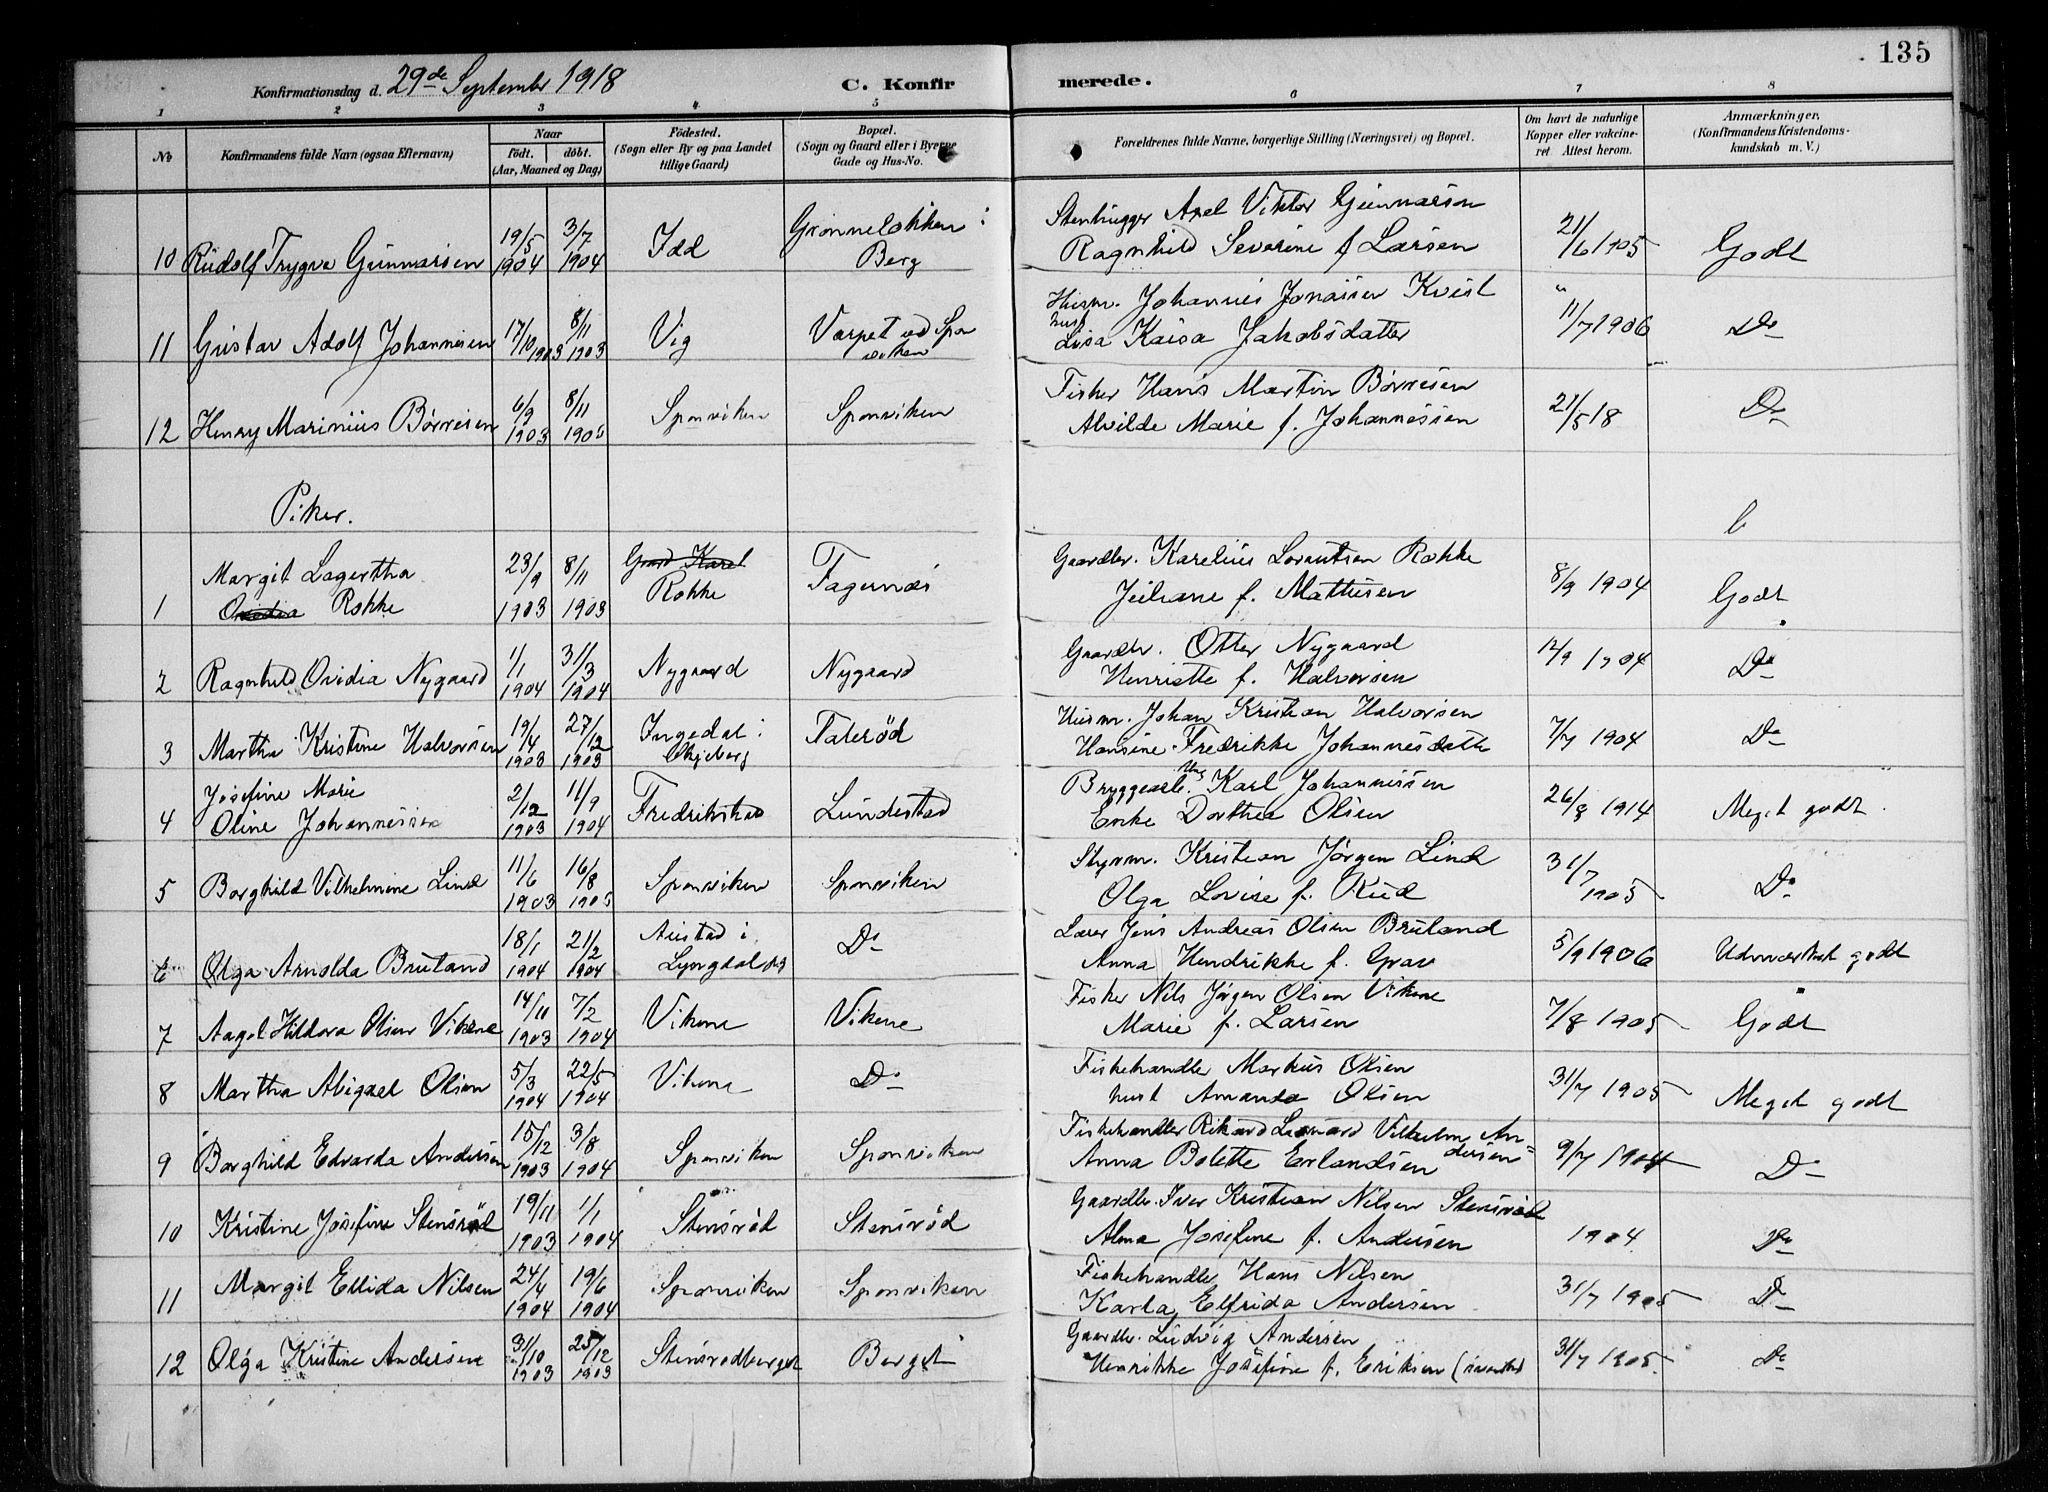 135
Konfirmationsdag d. 29de September 1918
C. Konfirmerede.
1 2 3 4 5 6 7 8
No
Konfirmandens fulde Navn (ogsaa Efternavn)
Naar
Födt. döbt.
(Aar, Maaned og Dag)
Födested.
(Sogn eller By og paa Landet
tillige Gaard)
Bopæl.
(Sogn og Gaard eller i Byerne
Gade og Hus-No.
Forældrenes fulde Navne, borgerlige Stilling (Næringsvei) og Bopæl.
Om havt de naturlige
Kopper eller vakcine-
ret. Attest herom.
Anmærkninger,
(Konfirmandens Kristendoms-
kundskab m. V.)
10 Rudolf Trygve Gunnarsen 19/5 1904 3/7 1904 Idd Grønneløkken i Berg
Stenhugger Axel Viktor Gunnarsen
Ragnhild Severine f Larsen 21/6 1905 Godt
11 Gustav Adolf Johannesen 17/10 1903 8/11 1903 Vig Varpet ved Sponviken
Husm. Johannes Jonassen Kvist
hust Lisa Kaisa Jakobsdatter 11/7 1906 Do
12 Henry Marinius Børresen 6/9 1903 8/11 1905 Sponviken Sponviken
Fisker Hans Martin Børresen
Alvilde Marie f. Johannessen 21/5 18 Do
Piker.
1 Margit Lagertha Rokke 23/9 1903 8/11 1903 Rokke Fagernæs
Gaardbr. Karelius Lorentsen Rokke
Juliane f. Mathisen 8/9 1904 Godt
2 Ragnhild Ovidia Nygaard 1/1 1904 31/3 1904 Nygaard Nygaard
Gaardbr. Otter Nygaard
Henriette f. Halvorsen 12/9 1904 Do
3 Martha Kristine Halvorsen 19/4 1903 27/12 1903 Ingedal i Skjeberg Taleröd
Husm. Johan Kristian Halvorsen
Hansine Fredrikke Johannesdatter 7/7 1904 Do
4 Josefine Marie
Oline Johannessen 2/12 1903 11/9 1904 Fredrikstad Lundestad
Bryggearb. Ung. Karl Johannessen
Enke Dorthea Olsen 26/8 1914 Meget godt
5 Borghild Vilhelmine Lind 11/6 1903 16/8 1905 Sponviken Sponviken
Styrm. Kristian Jörgen Lind
Olga Lovise f. Rud 31/7 1905 Do
6 Olga Arnolda Bruland 18/1 1904 21/2 1904 Austad i Lyngdal Do
Lærer Jens Andreas Olsen Bruland
Anna Hendrikke f. Grav 5/9 1906 Udmærket godt
7 Aagot Hildora Olsen Vikene 14/11 1903 7/2 1904 Vikene Vikene
Fisker Nils Jörgen Olsen Vikene
Marie f. Larsen 7/8 1905 Godt
8 Martha Abigael Olsen 5/3 1904 22/5 1904 Vikene Do
Fiskehandler Markus Olsen
hust Amanda Olsen 31/7 1905 Meget godt
9 Borghild Edvarda Andersen 15/12 1903 3/8 1904 Sponviken Sponviken
Fiskehandler Rikard Leonard Vilhelm Andersen
Anna Bolette Erlandsen 9/7 1904 Do
10 Kristine Josefine Stensröd 19/11 1903 1/1 1904 Stensröd Stensröd
Gaardbr. Iver Kristian Nilsen Stensröd
Alma Josefine f. Andersen 1904 Do
11 Margit Ellida Nilsen 24/4 1904 19/6 1904 Sponviken Sponviken
Fiskehandler Hans Nilsen
Karla Elfrida Andersen 31/7 1905 Do
12 Olga Kristine Andersen 31/10 1903 25/12 1903 Stensrödberget Berget
Gaardbr. Ludvig Andersen
Henrikke Josefine f. Eriksen 31/7 1905 Do